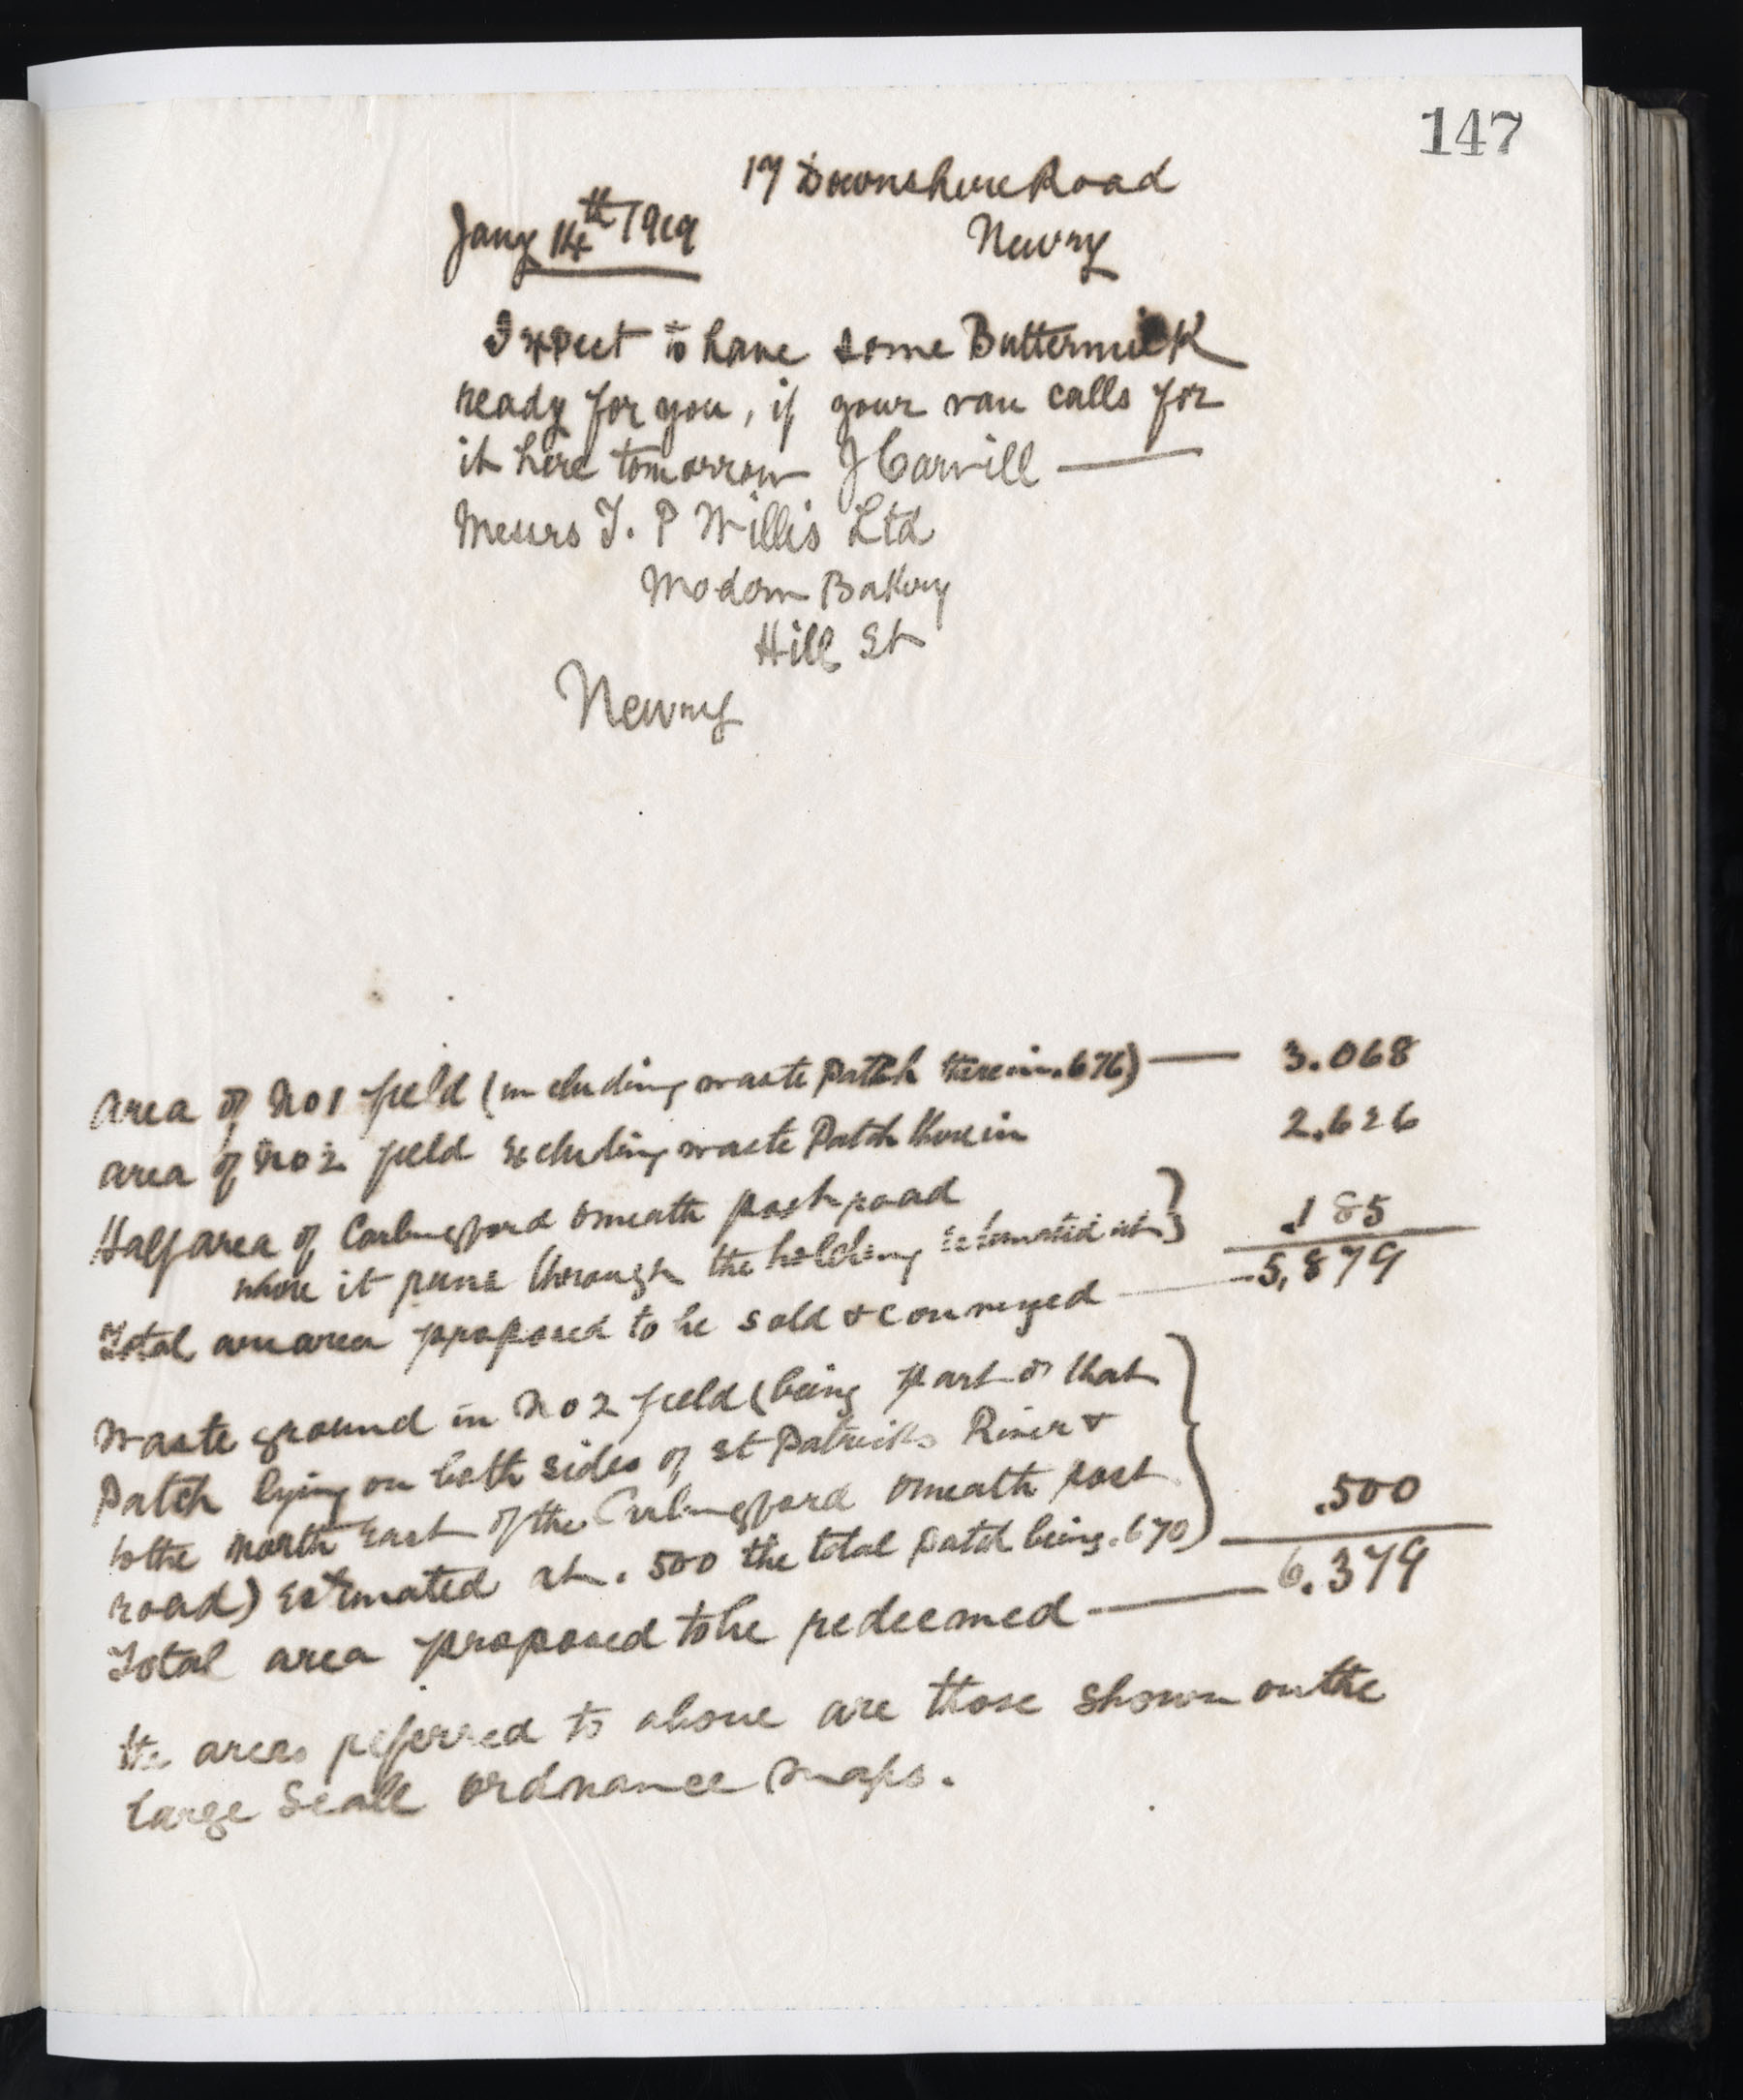 147
17 Downshire Road
Jany 14th 1919
Newry
I expect to have some Buttermilk
ready for you, if your van calls for
it here tomorrow J Carvill
Messrs T. P Willis Ltd
Modern Bakery
Hill St
Newry
Area of No 1 field (including waste patch therein .676) — 3.068
Area of No 2 field Excluding waste Patch therein 2.626
Half area of Carlingford Omeath post road
where it runs through the holding Estimated at } .185
Total area proposed to be sold & conveyed — 5.879
Waste ground in No 2 field (being part of that
Patch lying on both sides of St Patricks River &
to the North East of the Carlingford Omeath post
road) Estimated at .500 the total patch being .670) .500
Total area proposed to be redeemed — 6.379
The areas referred to above are those shown on the
Large Scale Ordnance Maps.